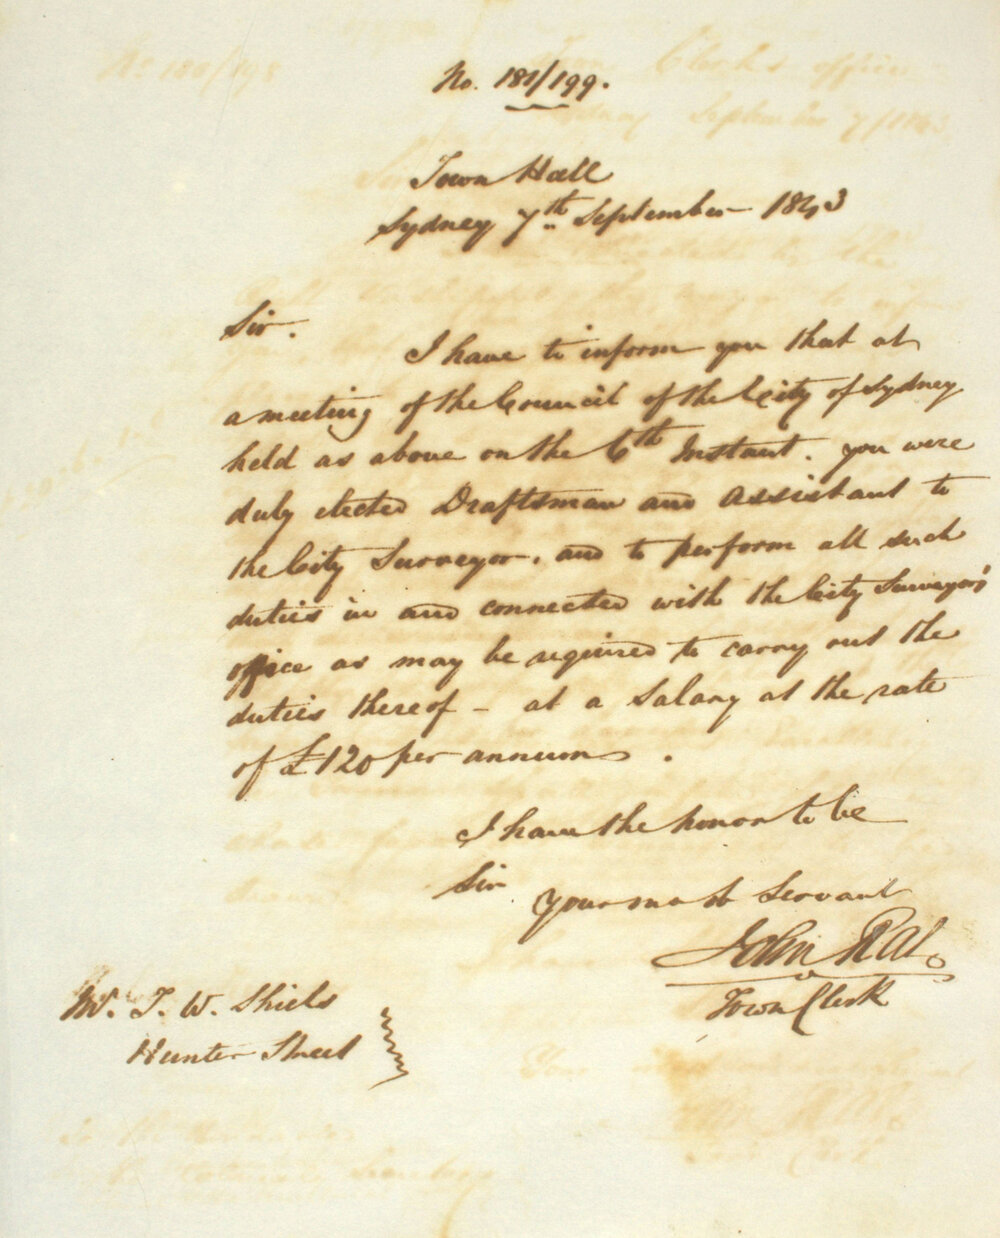 No. 181/199.
Town Hall
Sydney 7th September 1843
Sir.
I have to inform you that at
a meeting of the Council of the City of Sydney
held as above on the 6th Instant. you were
duly elected Draftsman and Assistant to
the City Surveyor. and to perform all such
duties in and connected with the City Surveyors'
office as may be required to carry out the
duties thereof - at a Salary at the rate
of £120 per annum.
I have the honor to be
Sir
Your most Servant
John Rae
Town Clerk
Mr. T. W. Shiels
Hunter Street